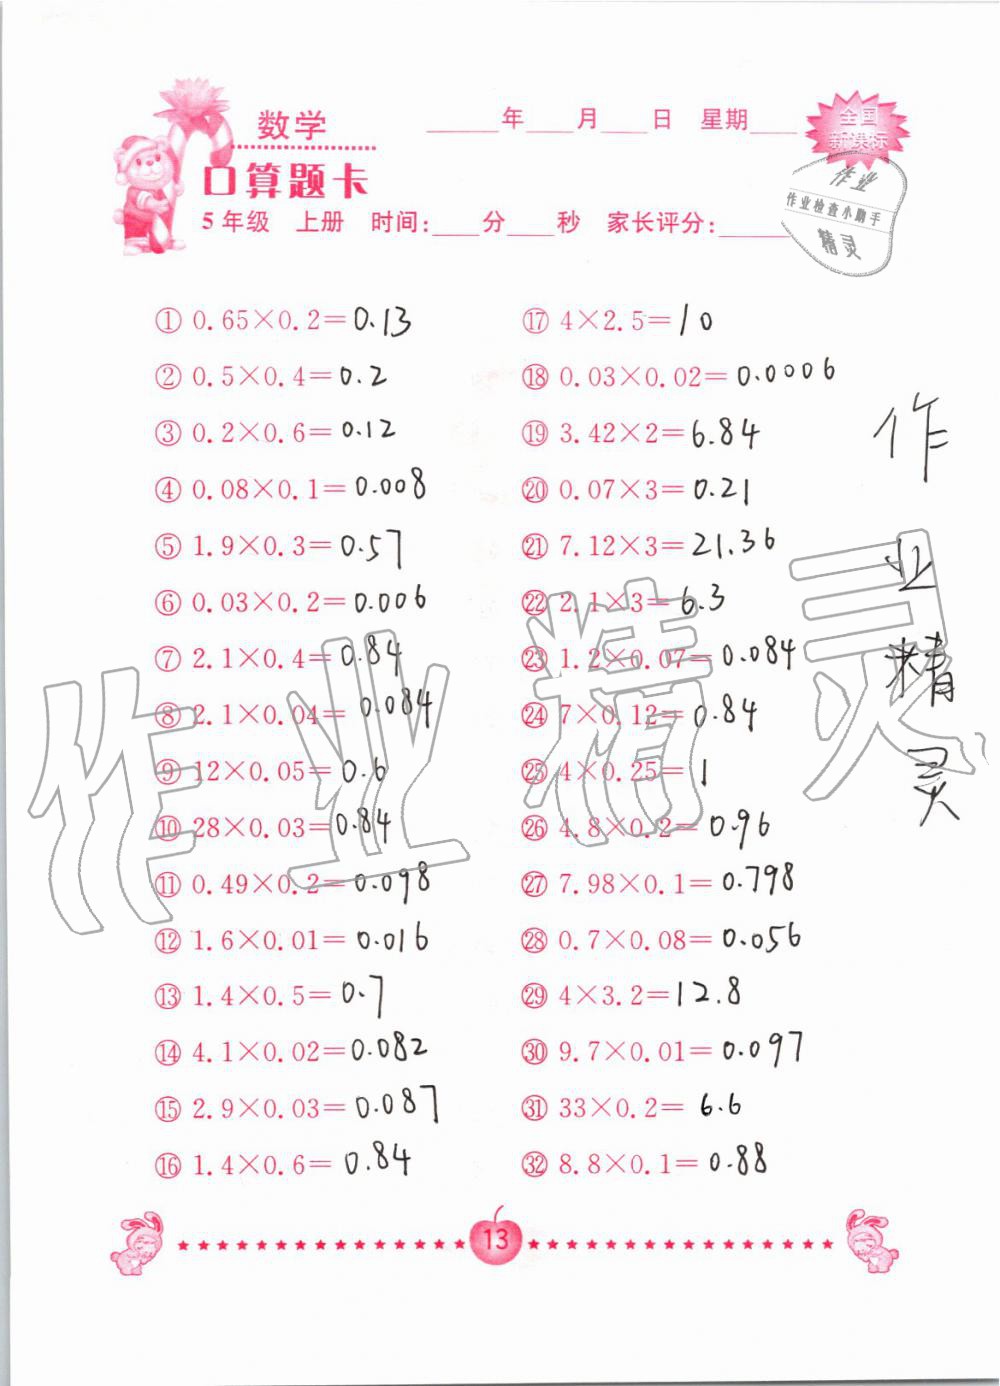 数学
____年____月____日 星期____
全国
新课标
口算题卡
作业
作业检查小助手
精灵
5年级 上册 时间:____分____秒 家长评分:____
① 0.65×0.2=0.13
② 0.5×0.4=0.2
③ 0.2×0.6=0.12
④ 0.08×0.1=0.008
⑤ 1.9×0.3=0.57
⑥ 0.03×0.2=0.006
⑦ 2.1×0.4=0.84
⑧ 2.1×0.04=0.084
⑨ 12×0.05=0.6
⑩ 28×0.03=0.84
⑪ 0.49×0.2=0.098
⑫ 1.6×0.01=0.016
⑬ 1.4×0.5=0.7
⑭ 4.1×0.02=0.082
⑮ 2.9×0.03=0.087
⑯ 1.4×0.6=0.84
⑰ 4×2.5=10
⑱ 0.03×0.02=0.0006
⑲ 3.42×2=6.84
⑳ 0.07×3=0.21
㉑ 7.12×3=21.36
㉒ 2.1×3=6.3
㉓ 1.2×0.07=0.084
㉔ 7×0.12=0.84
㉕ 4×0.25=1
㉖ 4.8×0.2=0.96
㉗ 7.98×0.1=0.798
㉘ 0.7×0.08=0.056
㉙ 4×3.2=12.8
㉚ 9.7×0.01=0.097
㉛ 33×0.2=6.6
㉜ 8.8×0.1=0.88
作
业
精
灵
作业精灵
13